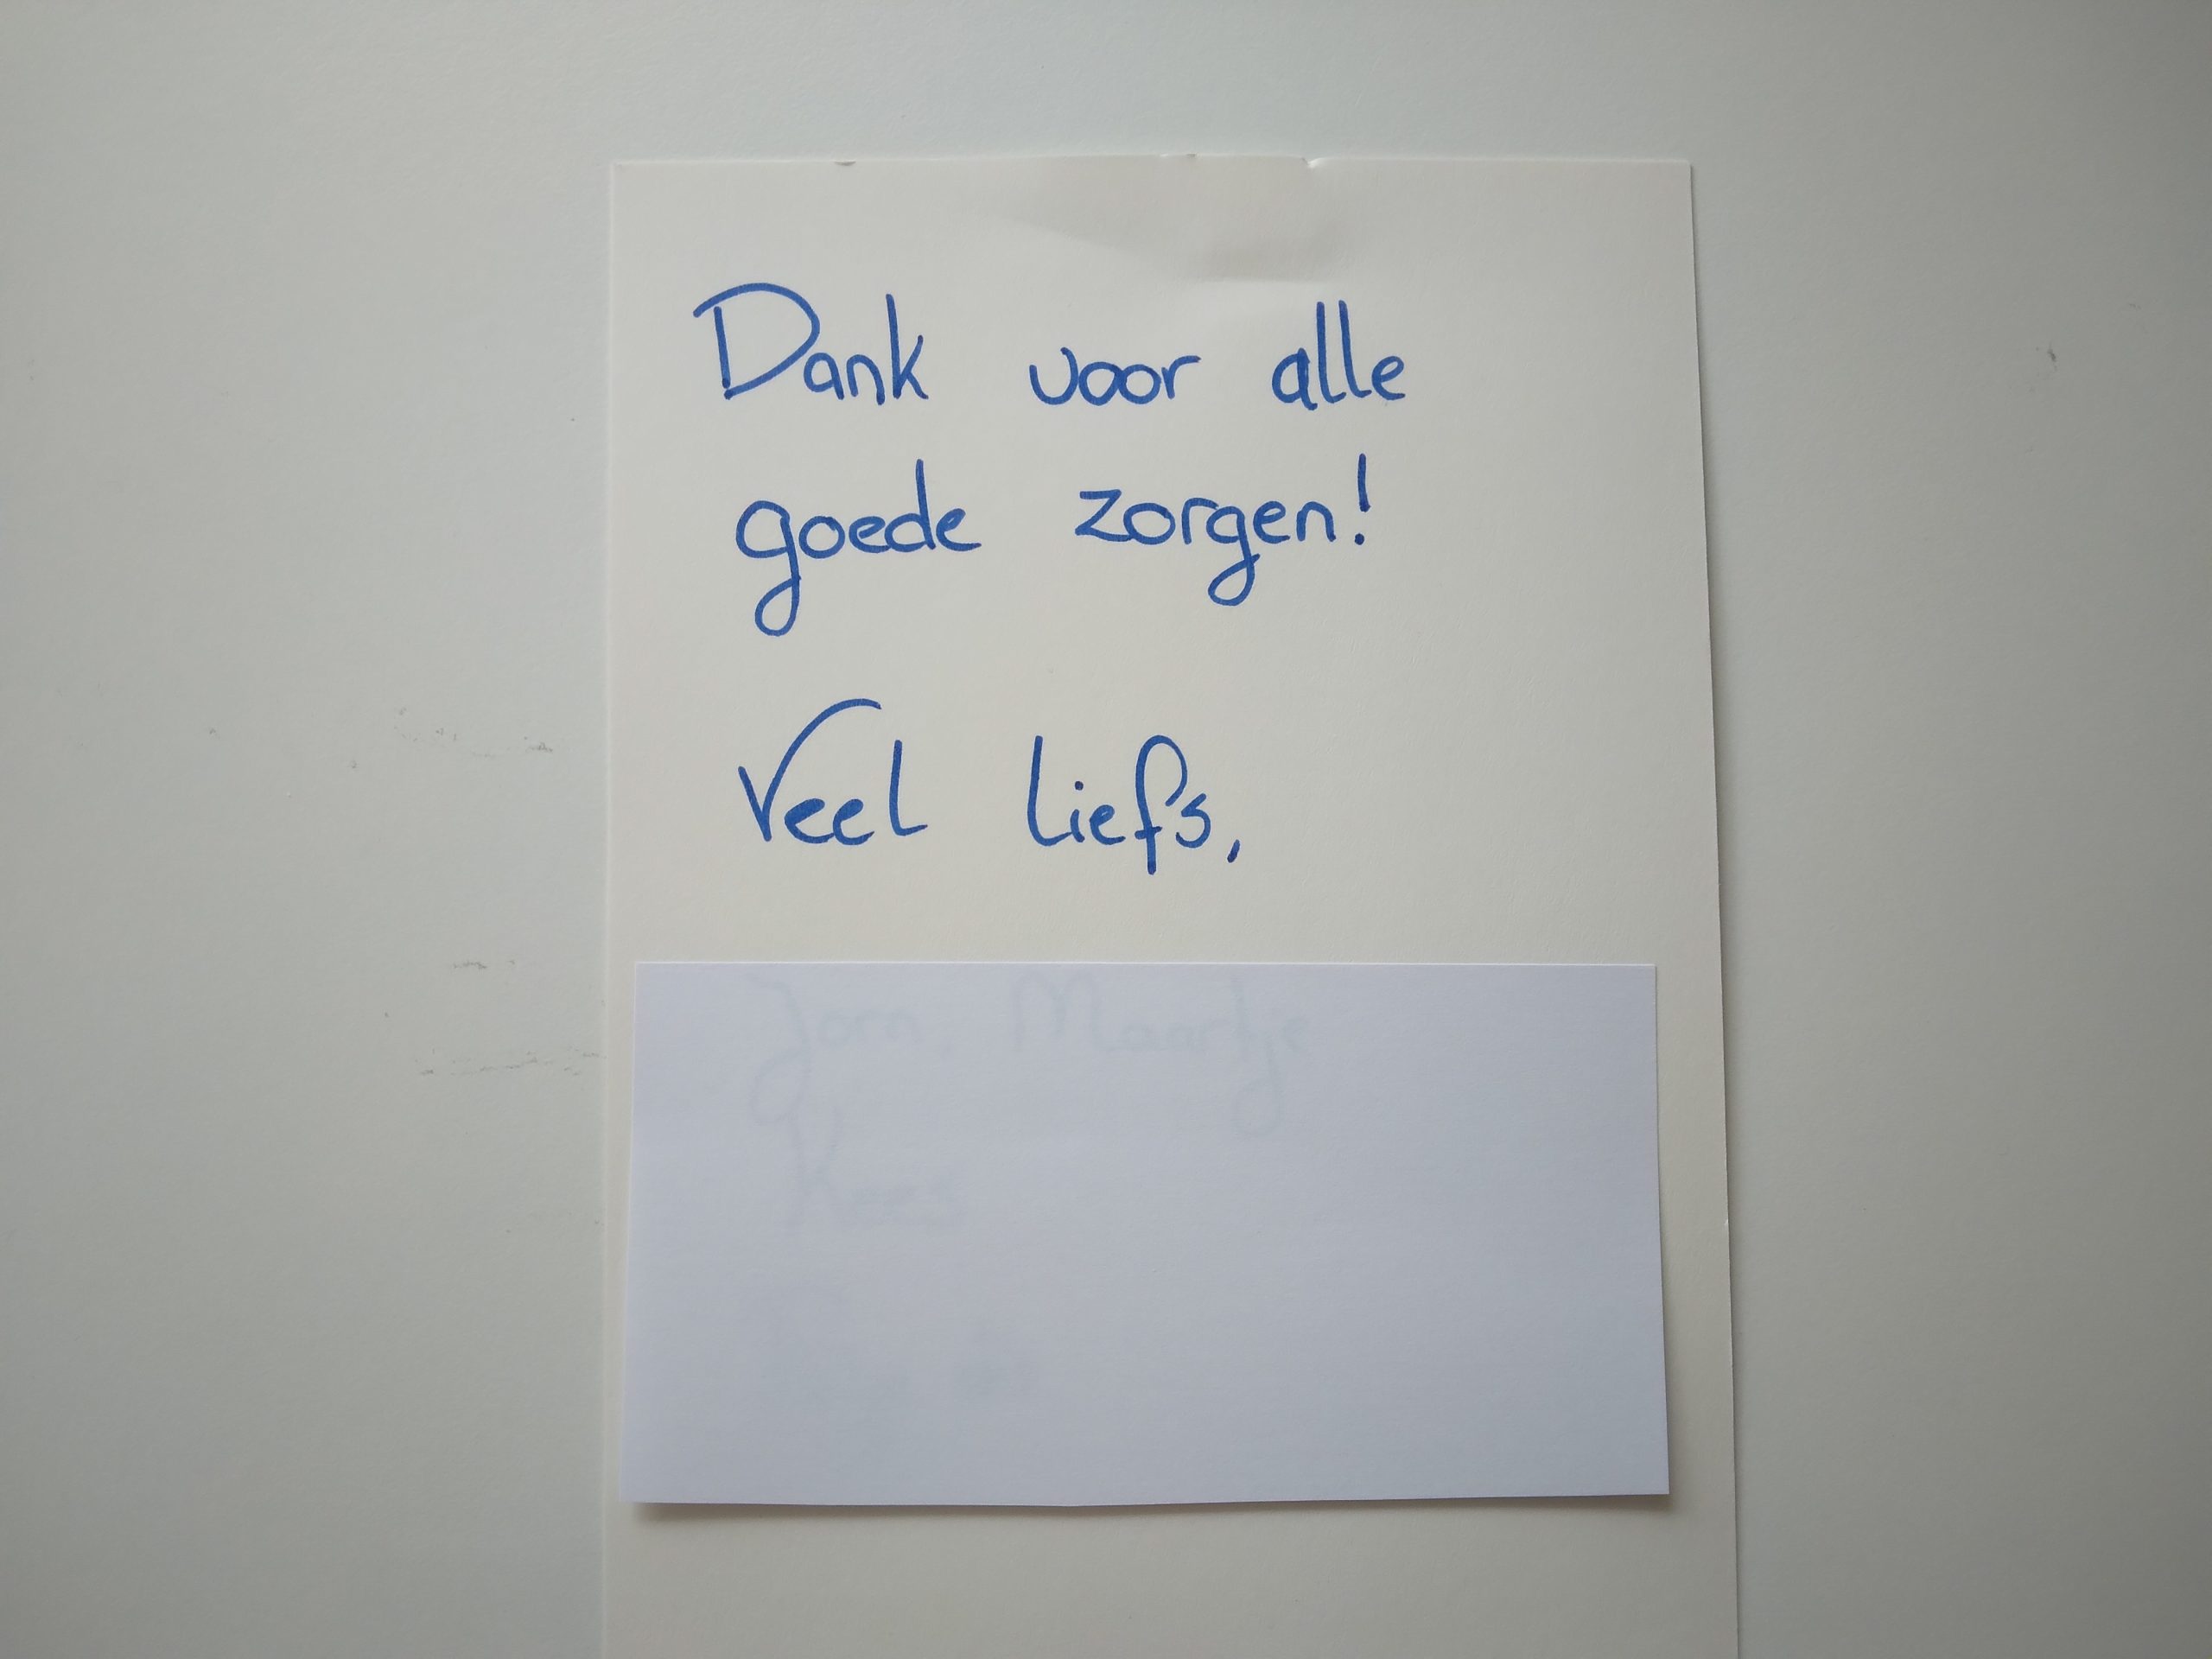 Dank voor alle
goede zorgen!
Veel liefs,